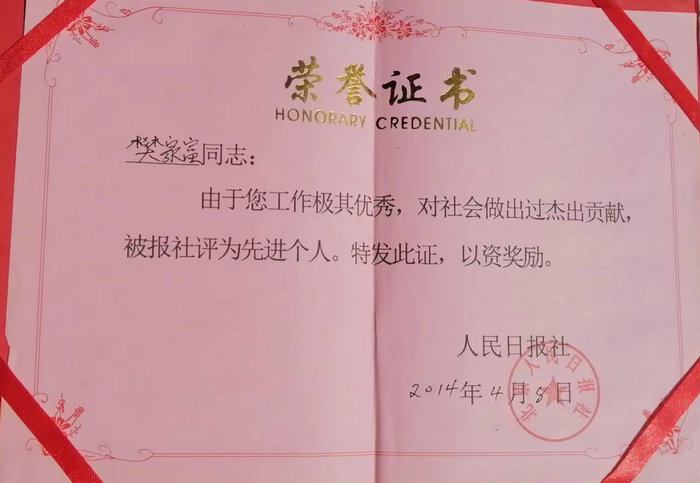 荣誉证书
HONORARY CREDENTIAL
樊家富同志：
由于您工作极其优秀，对社会做出过杰出贡献，
被报社评为先进个人。特发此证，以资奖励。
人民日报社
2014年4月8日
北京人民日报社